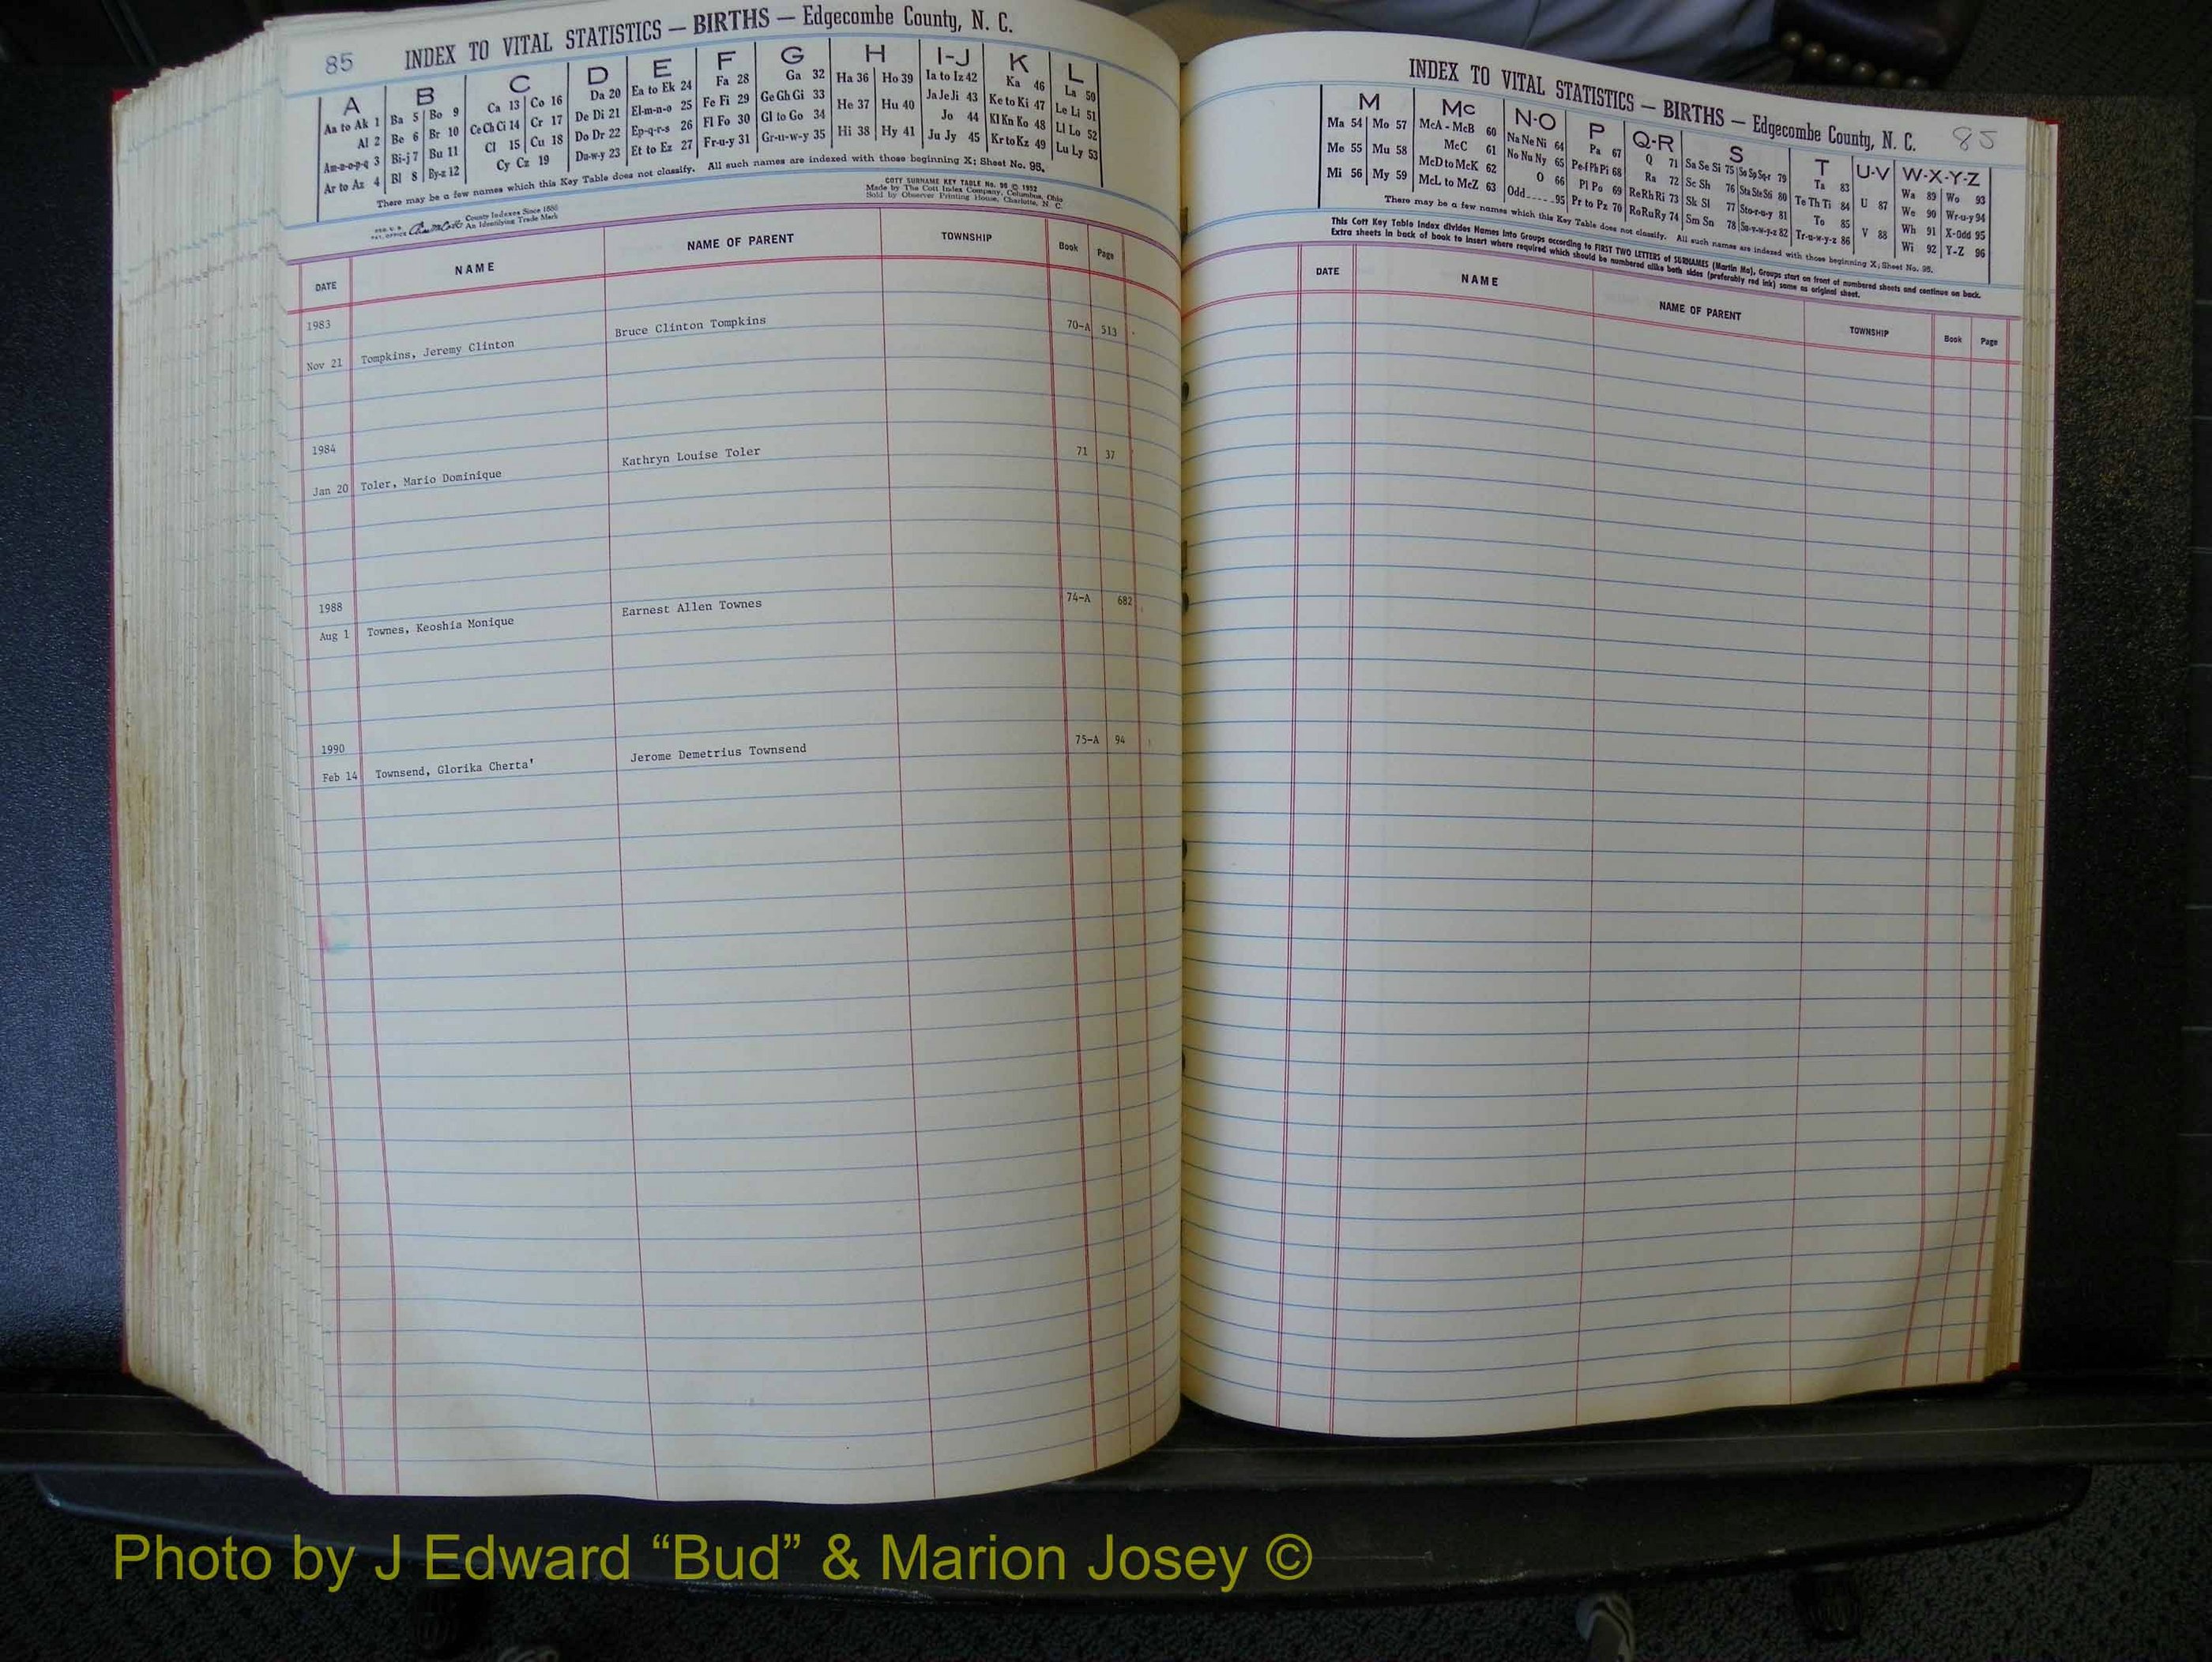 85 INDEX TO VITAL STATISTICS — BIRTHS — Edgecombe County, N. C.
A B C D E F G H I-J K L
Aa to Ak 1 Ba 5 Bo 9 Ca 13 Co 16 Da 20 Ea to Ek 24 Fa 28 Ga 32 Ha 36 Ho 39 Ia to Iz 42 Ka 46 La 50
Al 2 Be 6 Br 10 Ce Ch Ci 14 Cr 17 De Di 21 El-m-n-o 25 Fe Fi 29 Ge Gh Gi 33 He 37 Hu 40 Ja Je Ji 43 Ke to Ki 47 Le Li 51
Am-n-o-p-q 3 Bi-j 7 Bu 11 Cl 15 Cu 18 Do Dr 22 Ep-q-r-s 26 Fl Fo 30 Gl to Go 34 Hi 38 Hy 41 Jo 44 Kl Kn Ko 48 Ll Lo 52
Ar to Az 4 Bl 8 By-z 12 Cy Cz 19 Du-w-y 23 Et to Ez 27 Fr-u-y 31 Gr-u-w-y 35 Ju Jy 45 Kr to Kz 49 Lu Ly 53
There may be a few names which this Key Table does not classify. All such names are indexed with those beginning X; Sheet No. 95.
County Indexes Since 1888
An Identifying Trade Mark
COTT SURNAME KEY TABLE No. 96 © 1952
Made by The Cott Index Company, Columbus, Ohio
Sold by Observer Printing House, Charlotte, N. C.
DATE NAME NAME OF PARENT TOWNSHIP Book Page
1983
Nov 21 Tompkins, Jeremy Clinton Bruce Clinton Tompkins 70-A 513
1984
Jan 20 Toler, Mario Dominique Kathryn Louise Toler 71 37
1988
Aug 1 Townes, Keoshia Monique Earnest Allen Townes 74-A 682
1990
Feb 14 Townsend, Glorika Cherta' Jerome Demetrius Townsend 75-A 94
INDEX TO VITAL STATISTICS — BIRTHS — Edgecombe County, N. C. 85
M Mc N-O P Q-R S T U-V W-X-Y-Z
Ma 54 Mo 57 McA - McB 60 Na Ne Ni 64 Pa 67 Q 71 Sa Se Si 75 So Sp Sq-r 79 Ta 83 U 87 Wa 89 Wo 93
Me 55 Mu 58 McC 61 No Nu Ny 65 Pe-f Ph Pi 68 Ra 72 Sc Sh 76 Sta Ste Sti 80 Te Th Ti 84 V 88 We 90 Wr-u-y 94
Mi 56 My 59 McD to McK 62 O 66 Pl Po 69 Re Rh Ri 73 Sk Sl 77 Sto-r-u-y 81 To 85 Wh 91 X-Odd 95
McL to McZ 63 Odd 95 Pr to Pz 70 Ro Ru Ry 74 Sm Sn 78 Su-v-w-y-z 82 Tr-u-w-y-z 86 Wi 92 Y-Z 96
There may be a few names which this Key Table does not classify. All such names are indexed with those beginning X; Sheet No. 95.
This Cott Key Table Index divides Names into Groups according to FIRST TWO LETTERS of SURNAMES (Martin Ma). Groups start on front of numbered sheets and continue on back.
Extra sheets in back of book to insert where required which should be numbered alike both sides (preferably red ink) same as original sheet.
DATE NAME NAME OF PARENT TOWNSHIP Book Page
Photo by J Edward “Bud” & Marion Josey ©